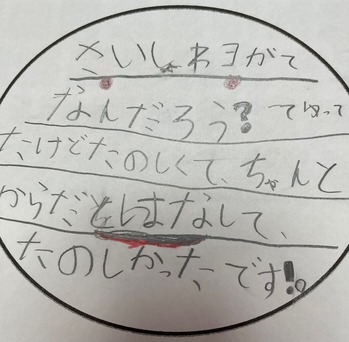 さいしょわヨガて
なんだろう?てゆって
たけどたのしくて、ちゃんと
からだとはなして、
たのしかったです!。